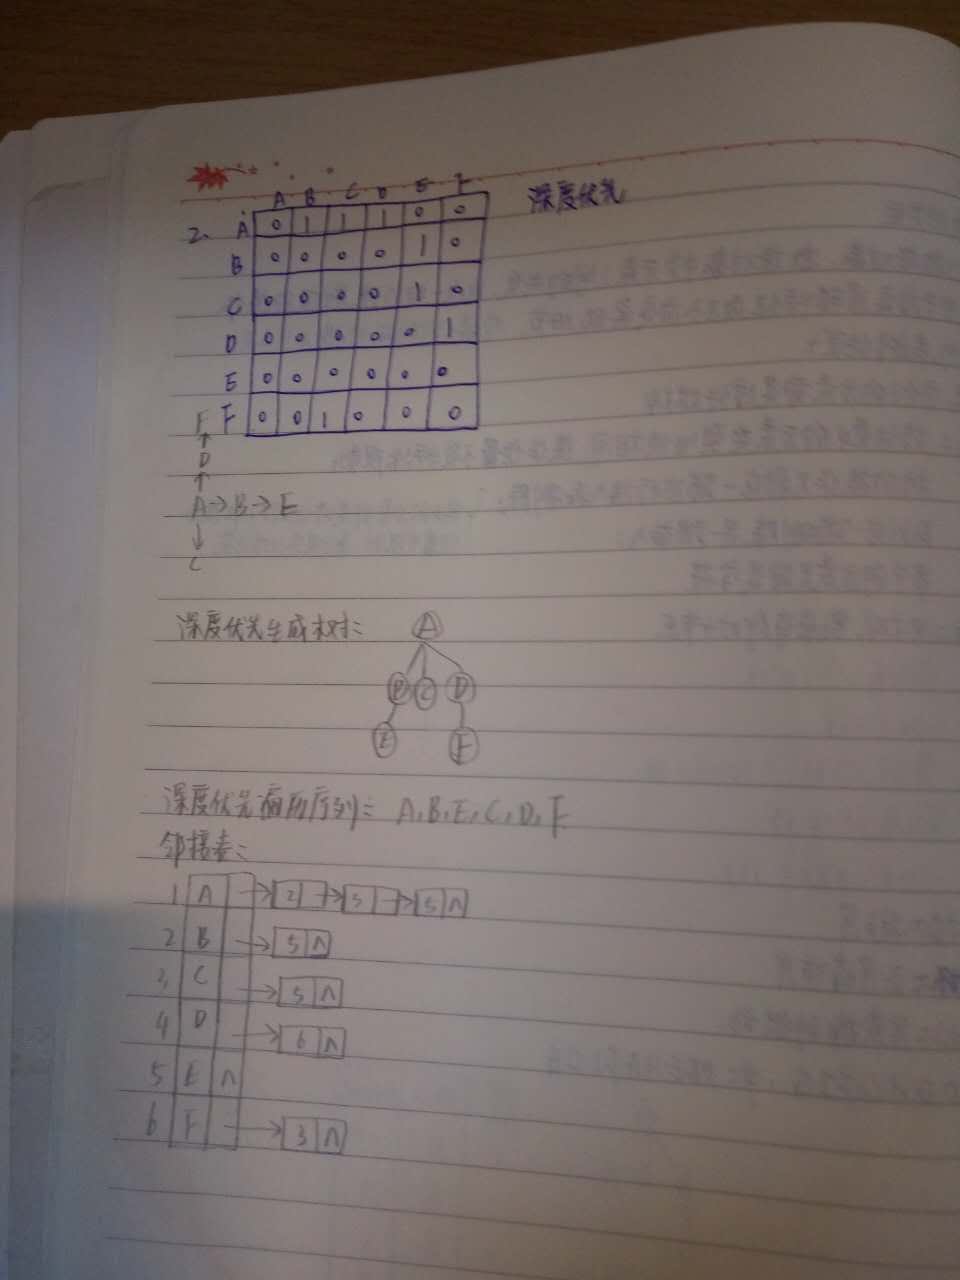 深度优先
A B C D E F
2. A 0 1 1 1 0 0
B 0 0 0 0 1 0
C 0 0 0 0 1 0
D 0 0 0 0 0 1
E 0 0 0 0 0 0
F F 0 0 1 0 0 0
↑
D
↑
A→B→E
↓
C
深度优先生成树:
A
B C D
E F
深度优先遍历序列: A,B,E,C,D,F
邻接表:
1 A → 2 → 3 → 5 ∧
2 B → 5 ∧
3 C → 5 ∧
4 D → 6 ∧
5 E ∧
6 F → 3 ∧